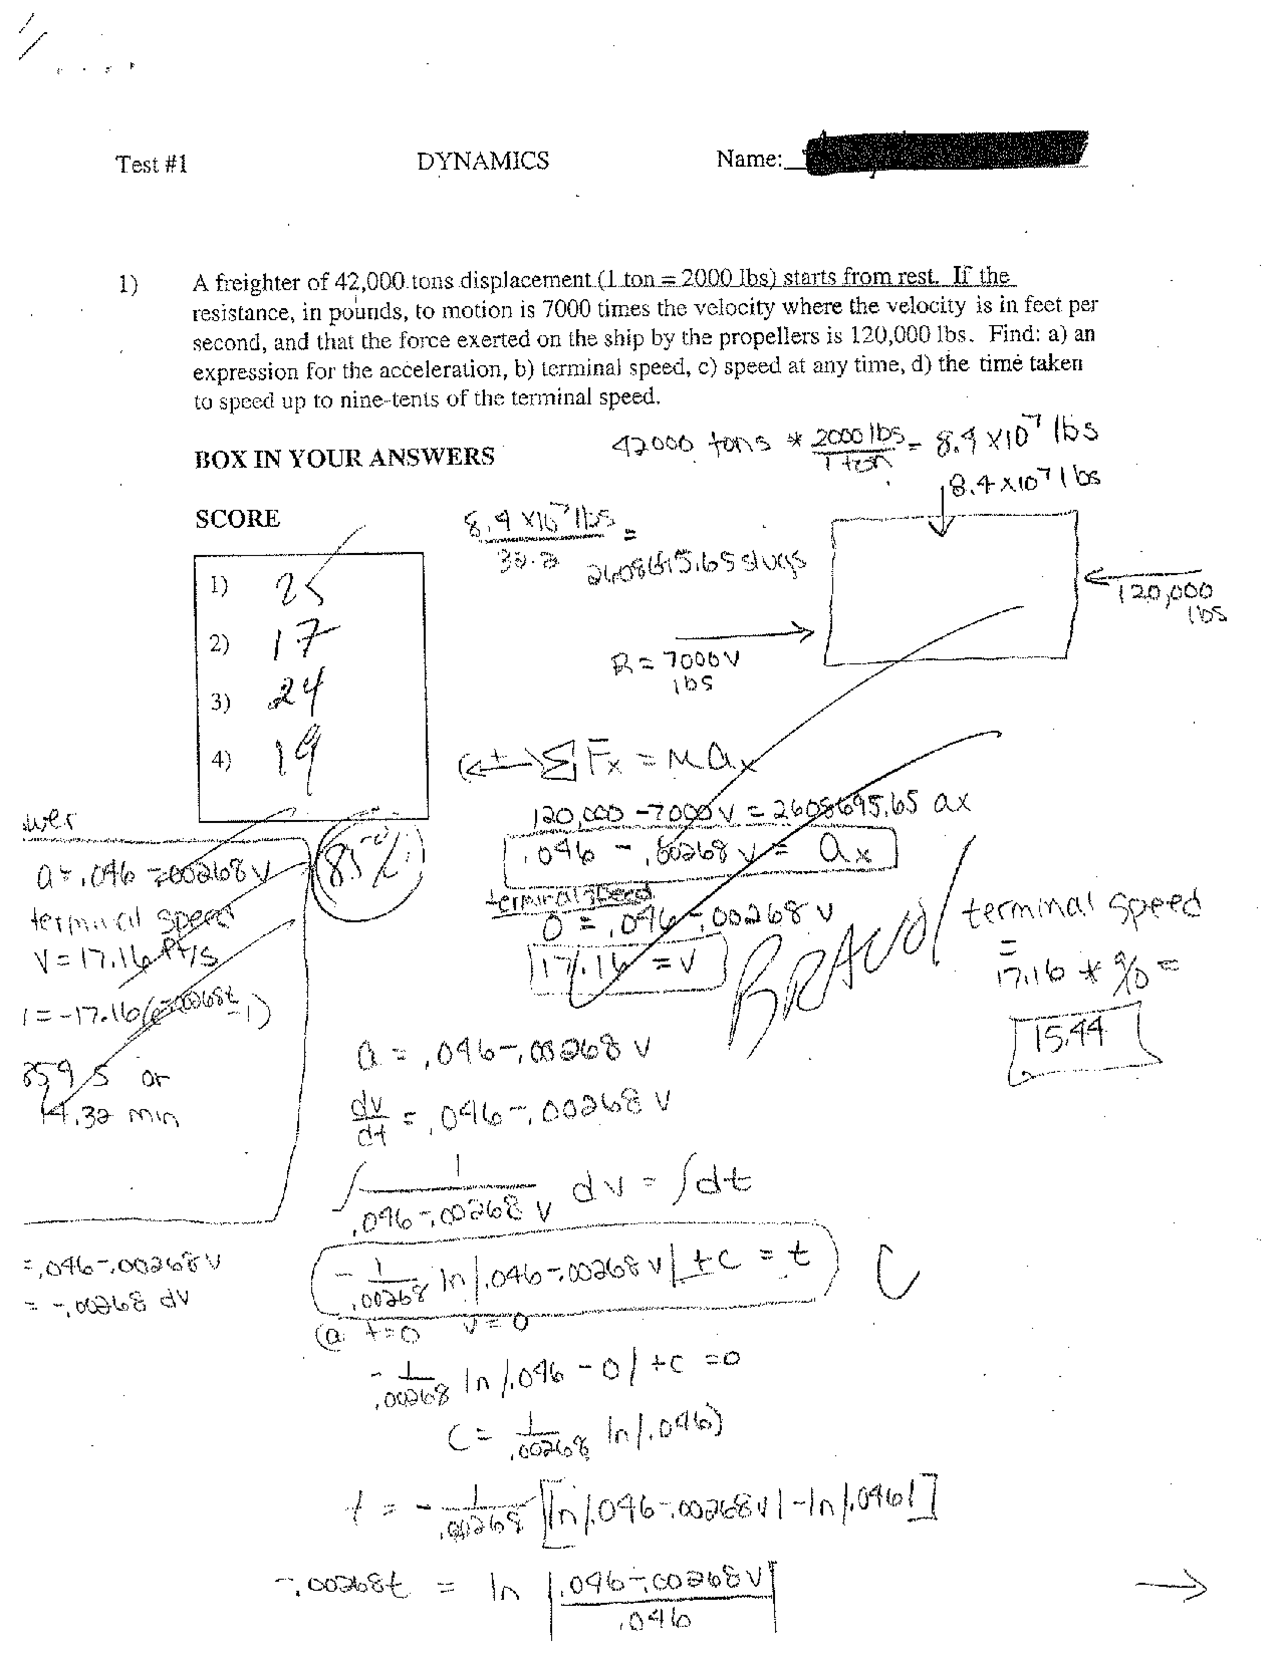 Test #1 DYNAMICS Name:
1) A freighter of 42,000 tons displacement (1 ton = 2000 lbs) starts from rest. If the
resistance, in pounds, to motion is 7000 times the velocity where the velocity is in feet per
second, and that the force exerted on the ship by the propellers is 120,000 lbs. Find: a) an
expression for the acceleration, b) terminal speed, c) speed at any time, d) the time taken
to speed up to nine-tents of the terminal speed.
42000 tons * 2000 lbs / 1 ton = 8.4 x10^7 lbs
BOX IN YOUR ANSWERS
8.4 x10^7 lbs
SCORE
8.4 x10^7 lbs / 32.2 = 2608695.65 slugs
1) 25
2) 17
3) 24
4) 19
85%
120,000 lbs
R = 7000 V lbs
(←+) ΣFx = Max
120,000 - 7000 V = 2608695.65 ax
.046 - .00268 V = ax
terminal speed
0 = .046 - .00268 V
17.16 = V
BRAVO!
terminal speed
=
17.16 * 9/10 =
15.44
wer
a = .046 - .00268 V
terminal speed
V = 17.16 ft/s
= -17.16(e^-.00268t - 1)
859 s or
14.32 min
= .046 - .00268 V
= -.00268 dV
a = .046 - .00268 V
dv/dt = .046 - .00268 V
∫ 1 / .046 - .00268 V dV = ∫dt
- 1/.00268 ln |.046 - .00268 V| + C = t C
@ t = 0 V = 0
- 1/.00268 ln |.046 - 0| + C = 0
C = 1/.00268 ln |.046|
t = - 1/.00268 [ln |.046 - .00268 V| - ln |.046|]
-.00268t = ln |.046 - .00268 V / .046| →